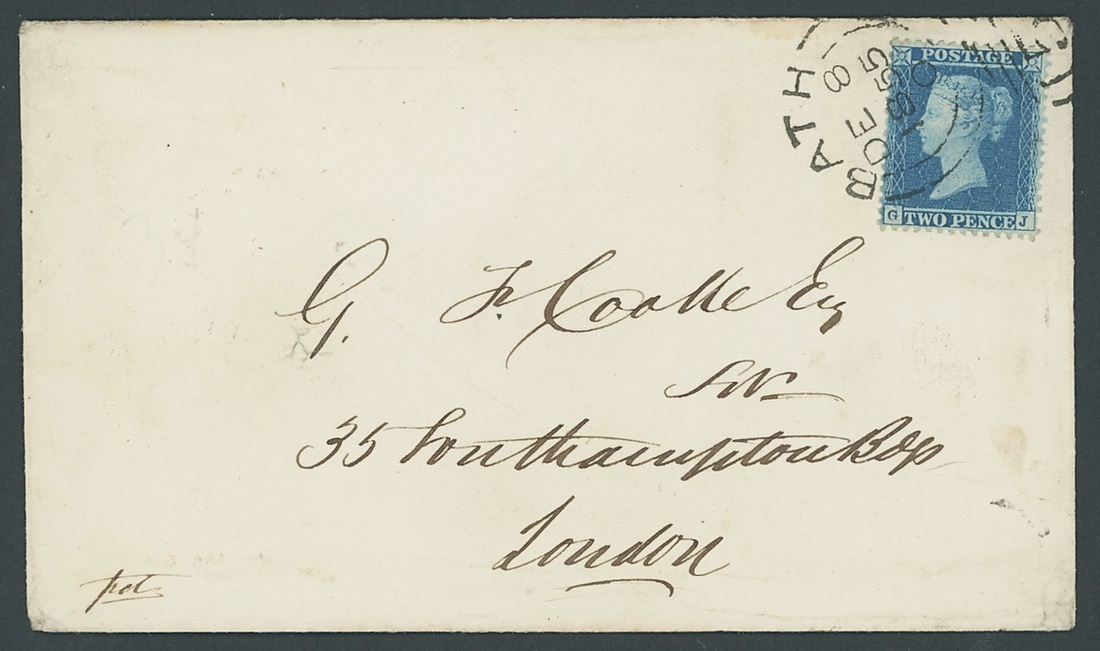 BATH
DE 8
1855
POSTAGE
G TWO PENCE J
G. F. Cooke Esq
35 Southampton Bdgs
London